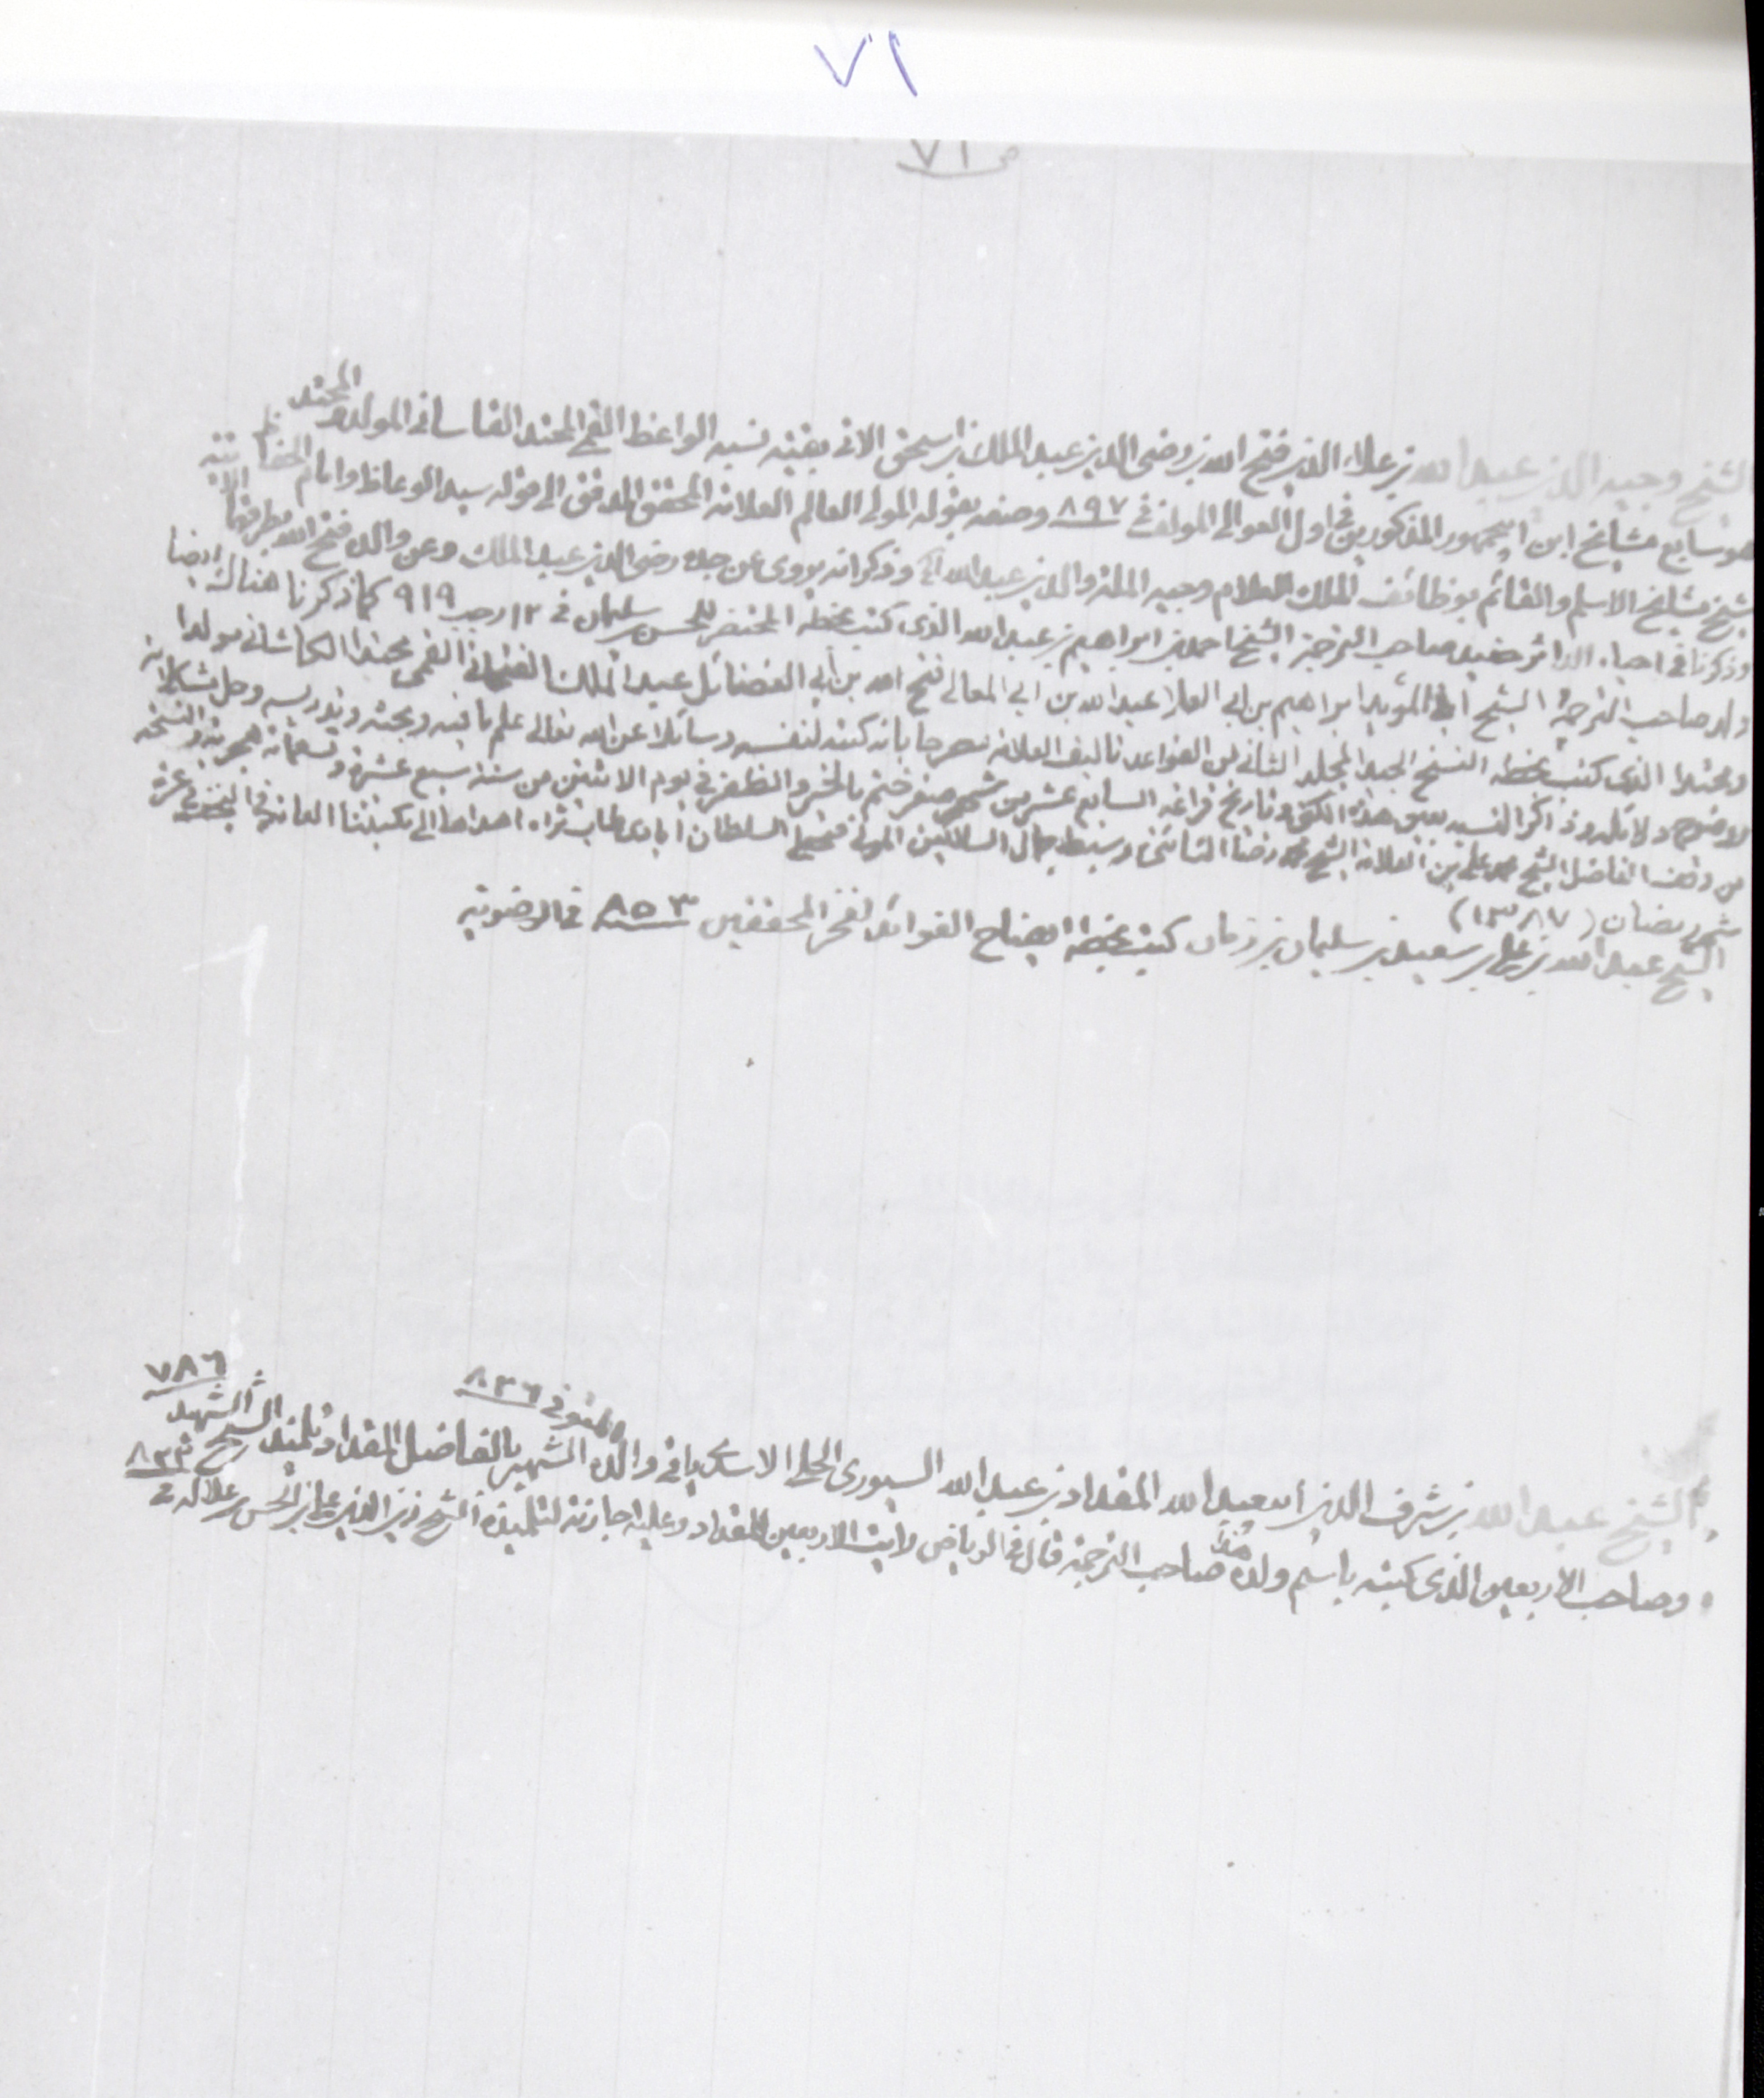 ٧١
ص ٧١
الشيخ وجيه الدين عبد الله بن علاء الدين فتح الله بن رضى الدين عبد الملك بن اسحق الاتى بقية نسبه الواعظ القمى المحتد القاسانى المولد والمحتد
هو سابع مشايخ ابن ابى جمهور المذكورين فى اول العوالى المولف فى ٨٩٧ وصفه بقوله المولى العالم العلامة المحقق المدقق الى قوله سيد الوعاظ وامام الحفاظ
شيخ مشايخ الاسلام والقائم بوظائف الملك العلام وجيه الملة والدين عبد الله الخ وذكر انه يروى عن جده رضى الدين عبد الملك وعن والده فتح الله بطرقهما الاتية
وذكرنا فى احياء الداثر حفيد صاحب الترجمة الشيخ احمد بن ابراهيم بن عبد الله الذى كتب بخطه المختصر للحسن بن سليمان فى ١٢ رجب ٩١٩ كما ذكرنا هناك ايضا
ولد صاحب الترجمة الشيخ ابى المؤيد ابراهيم بن ابى العلا عبد الله بن ابى المعالى فتح الله بن ابى الفضائل عبد الملك القمى محتدا الكاشانى مولدا
ومحتدا الذى كتب بخطه النسخ الجيد المجلد الثانى من القواعد تاليف العلامة مصرحا بانه كتبه لنفسه وسائلا عن الله تعالى علم ما فيه وبحثه وتدريسه وحل مشكلاته
لاخوانه وذكر النسب بعين هذه الكنى وتاريخ فراغه السابع عشر من شهر صفر ختم بالخير والظفر فى يوم الاثنين من سنة سبع عشرة وتسعمائة هجرية والنسخة
من وقف الفاضل الشيخ محمد على بن العلامة الشيخ محمد رضا وسبط جمال السالكين المولى السلطان ابادى طاب ثراه اهداها الى مكتبتنا العامة فى النجف غرة
شهر رمضان (١٣٨٧)
الشيخ عبد الله بن على بن سعيد بن سليمان بن زمان كتب بخطه ايضاح الفوائد لفخر المحققين ٨٥٣ فى الرضوية
الشيخ عبد الله بن شرف الدين ابى عبد الله المقداد بن عبد الله السيورى الحلى الاسدى والده الشهير بالفاضل المقداد المتوفى ٨٢٦ تلميذ الشيخ الشهيد ٧٨٦
وصاحب الاربعين الذى كتبه باسم ولده هذا صاحب الترجمة قال فى الرياض رايت الاربعين للمقداد وعليه اجازته لتلميذه الشيخ زين الدين على بن الحسن بن علالة فى ٨٢٢